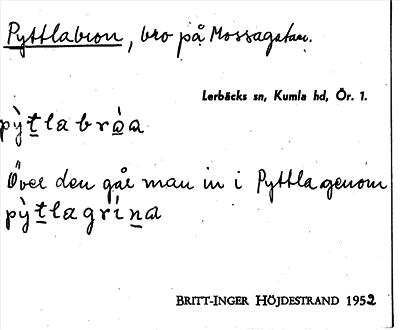 Pyttlabron, bro på Mossagatan.
Lerbäcks sn, Kumla hd, Ör. 1.
pỳt̲labróa
Över den går man in i Pyttlagenom
pỳt̲lagrín̲a
BRITT-INGER HÖJDESTRAND 1952